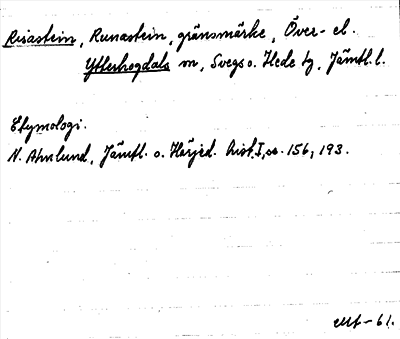 Risastein, Runastein, gränsmärke, Över- el.
Ytterhogdals sn, Svegs o. Hede tg, Jämtl. l.
Etymologi.
N. Ahnlund, Jämtl. o. Härjed. hist. I, ss. 156, 193.
-61.